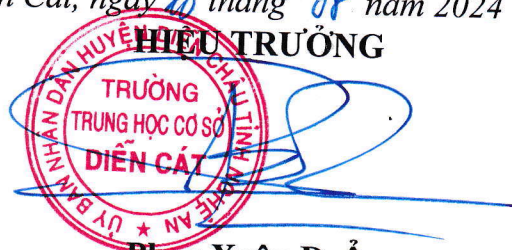 Cát, ngày tháng 08 năm 2024
HIỆU TRƯỞNG
ỦY BAN NHÂN DÂN HUYỆN DIỄN CHÂU TỈNH NGHỆ AN
TRƯỜNG
TRUNG HỌC CƠ SỞ
DIỄN CÁT
Xuân